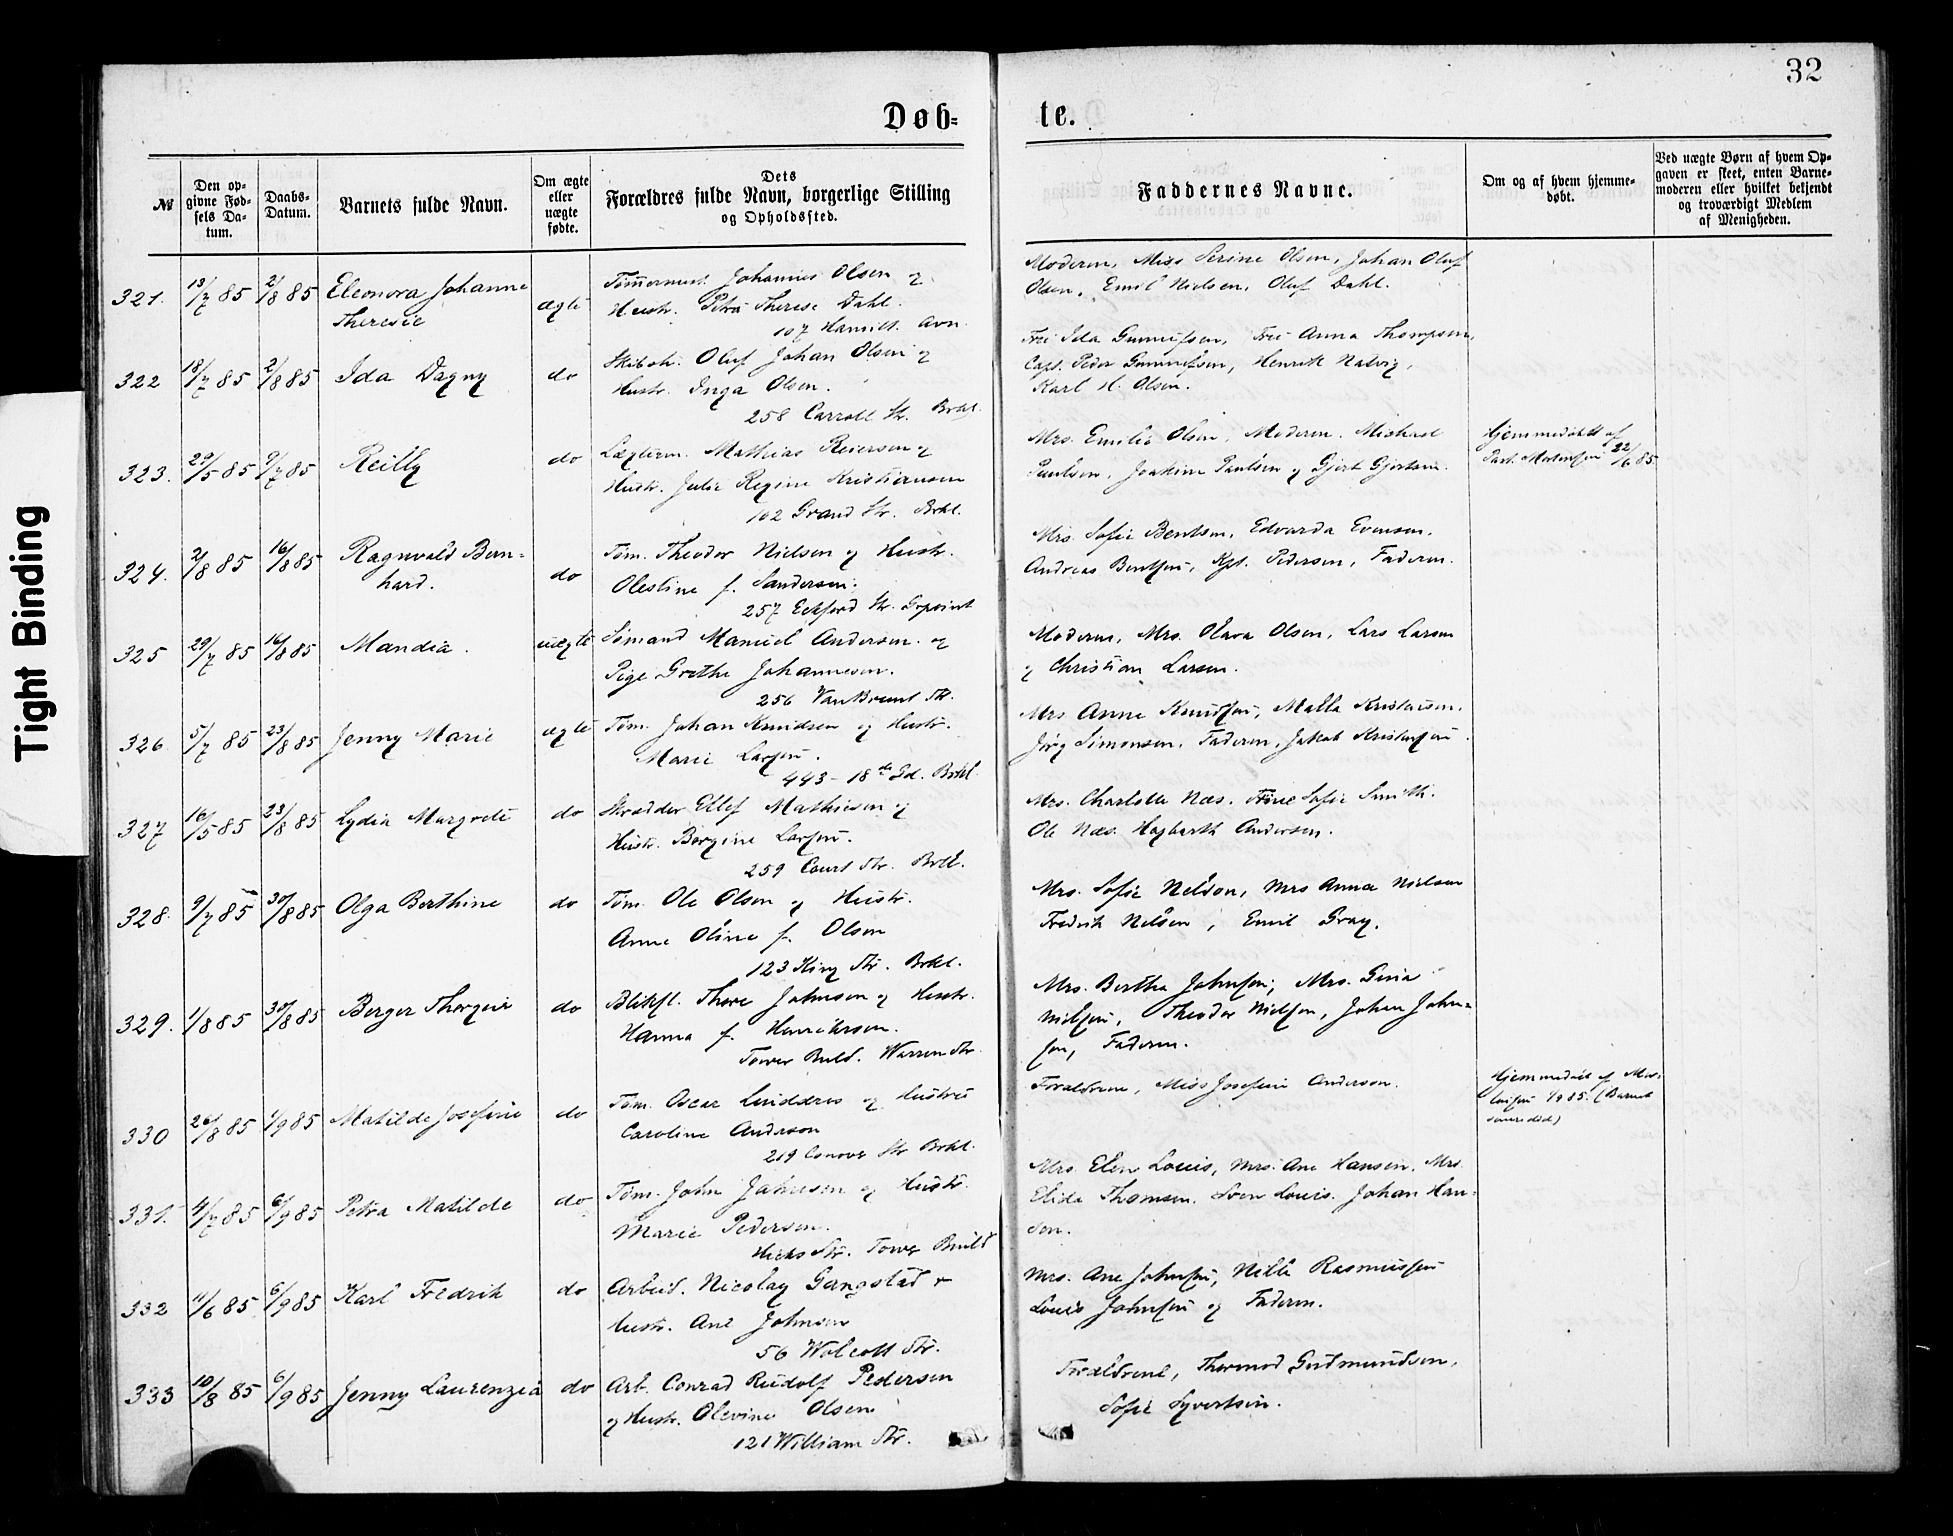 Tight Binding
32
Døb-
te.
№
Den op-
givne Fød-
sels Da-
tum.
Daabs-
Datum.
Barnets fulde Navn.
Om ægte
eller
uægte
fødte.
Dets
Forældres fulde Navn, borgerlige Stilling
og Opholdssted.
Faddernes Navne.
Om og af hvem hjemme-
døbt.
Ved uægte Børn af hvem Op-
gaven er skeet, enten Barne-
moderen eller hvilket bekjendt
og troværdigt Medlem
af Menigheden.
321. 13/7 85 2/8 85 Eleonora Johanne
Theresie
ægte
Tømmermd. Johannes Olsen og
Hustr. Petra Therese Dahl.
107 Hamilt. Avn.
Moderen, Miss Serine Olsen, Johan Oluf
Olsen, Emil Nielsen, Oluf Dahl.
322 18/7 85 2/8 85 Ida Dagny do
Oluf Johan Olsen og
Hustr. Inga Olsen.
258 Carroll Str. Brkl.
Ida Gunnufsen, Anna Thompson,
Capt. Peder Gunnufsen, Henrik Natvig,
Karl H. Olsen.
323. 29/5 85 9/7 85 Reilly do
Mathias Reiersen og
Hustr. Julie Regine Kristiansen
102 Grand Str. Brkl.
Mrs. Emilie Olsen, Moderen, Michael
Paulsen, Joakim Paulsen og Gjert Gjertsen.
Hjemmedøbt af
Past. Mortensen 22/6 85
324. 2/8 85 16/8 85 Ragnvald Bern-
hard.
do
Tøm. Theodor Nielsen og Hustr.
Olestine f. Sandersen.
257 Eckford Str. Grpoint
Mrs. Sofie Bentsen, Edvarda Evensen,
Andreas Bentsen, Kpt. Pedersen, Faderen.
325 29/7 85 16/8 85 Mandia. uægte
Sømand Manuel Andersen og
Pige Grethe Johannesen.
256 Van Brunt Str.
Moderen, Mrs. Olava Olsen, Lars Larsen
og Christian Larsen.
326. 5/7 85 23/8 85 Jenny Marie ægte
Tøm. Johan Knudsen og Hustr.
Marie Larsen.
443 - 18de Sd. Brkl.
Mrs Anne Knudsen, Malla Kristensen,
Jörg Simonsen, Faderen, Jakob Kristensen.
327 16/5 85 23/8 85 Lydia Margrete do
Skrædder Ellef Mathiesen og
Hustr. Bergine Larsen.
259 Court Str. Brkl.
Mrs. Charlotte Næs. Sofie Smith.
Ole Næs. Hagbarth Andersen.
328. 9/7 85 30/8 85 Olga Berthine do
Tøm. Ole Olsen og Hustr.
Anne Oline f. Olsen
123 King Str. Brkl.
Mrs. Sofie Nelson, Mrs Anna Nielsen
Fredrik Nelson, Emil Gray.
329. 1/8 85 30/8 85 Berger Thorgeir do
Bliksl. Thore Johnsen og Hustr.
Hanna f. Henriksen.
Tower Buld. Warren Str.
Mrs. Bertha Johnsen, Mrs. Gina
Nielsen, Theodor Nielsen, Johan John-
sen, Faderen.
330 26/8 85 1/9 85 Matilde Josefine do
Tøm. Oscar Lunddres og Hustru
Caroline Anderson
219 Conover Str Brkl.
Forældrene, Miss Josefine Anderson.
Hjemmedøbt af Mor-
tensen 1/9 85. (Barnet
senere død)
331. 4/7 85 6/9 85 Petra Matilde do
Tøm. John Johnsen og Hustr.
Marie Pedersen.
Hicks Str. Tower Build
Mrs. Elen Louis, Mrs. Ane Hansen. Mrs.
Elida Thomsen. Sven Louis. Johan Han-
sen.
332 11/6 85 6/9 85 Karl Fredrik do
Arbeid. Nicolay Gangstad
hustr. Ane Johnsen
56 Wolcott Str.
Mrs. Ane Johnsen, Nille Rasmussen
Louis Johnsen og Faderen.
333 10/8 85 6/9 85 Jenny Laurenzia do
Arb. Conrad Rudolf Pedersen
og Hustr. Olevine Olsen
121 William Str.
Forældrene, Thormod Gudmundsen,
Sofie Syvertsen.